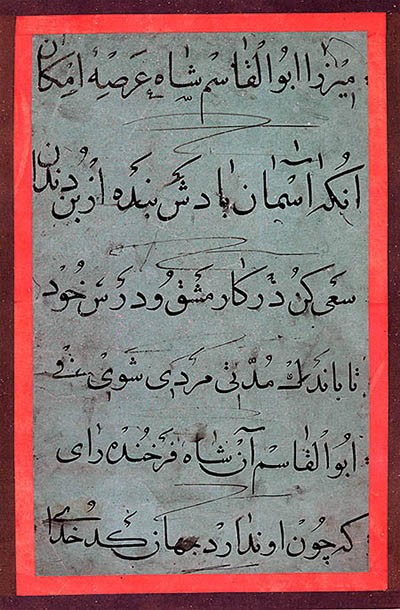 میرزا ابوالقاسم شاه عرصهٔ امکان
آنکه آسمان بادش بنده از بن دندان
سعی کن در کار مشق و درس خود
تا باندک مدتی مردی شوی
ابوالقاسم آن شاه فرخنده رای
که چون او ندارد جهان کدخدای